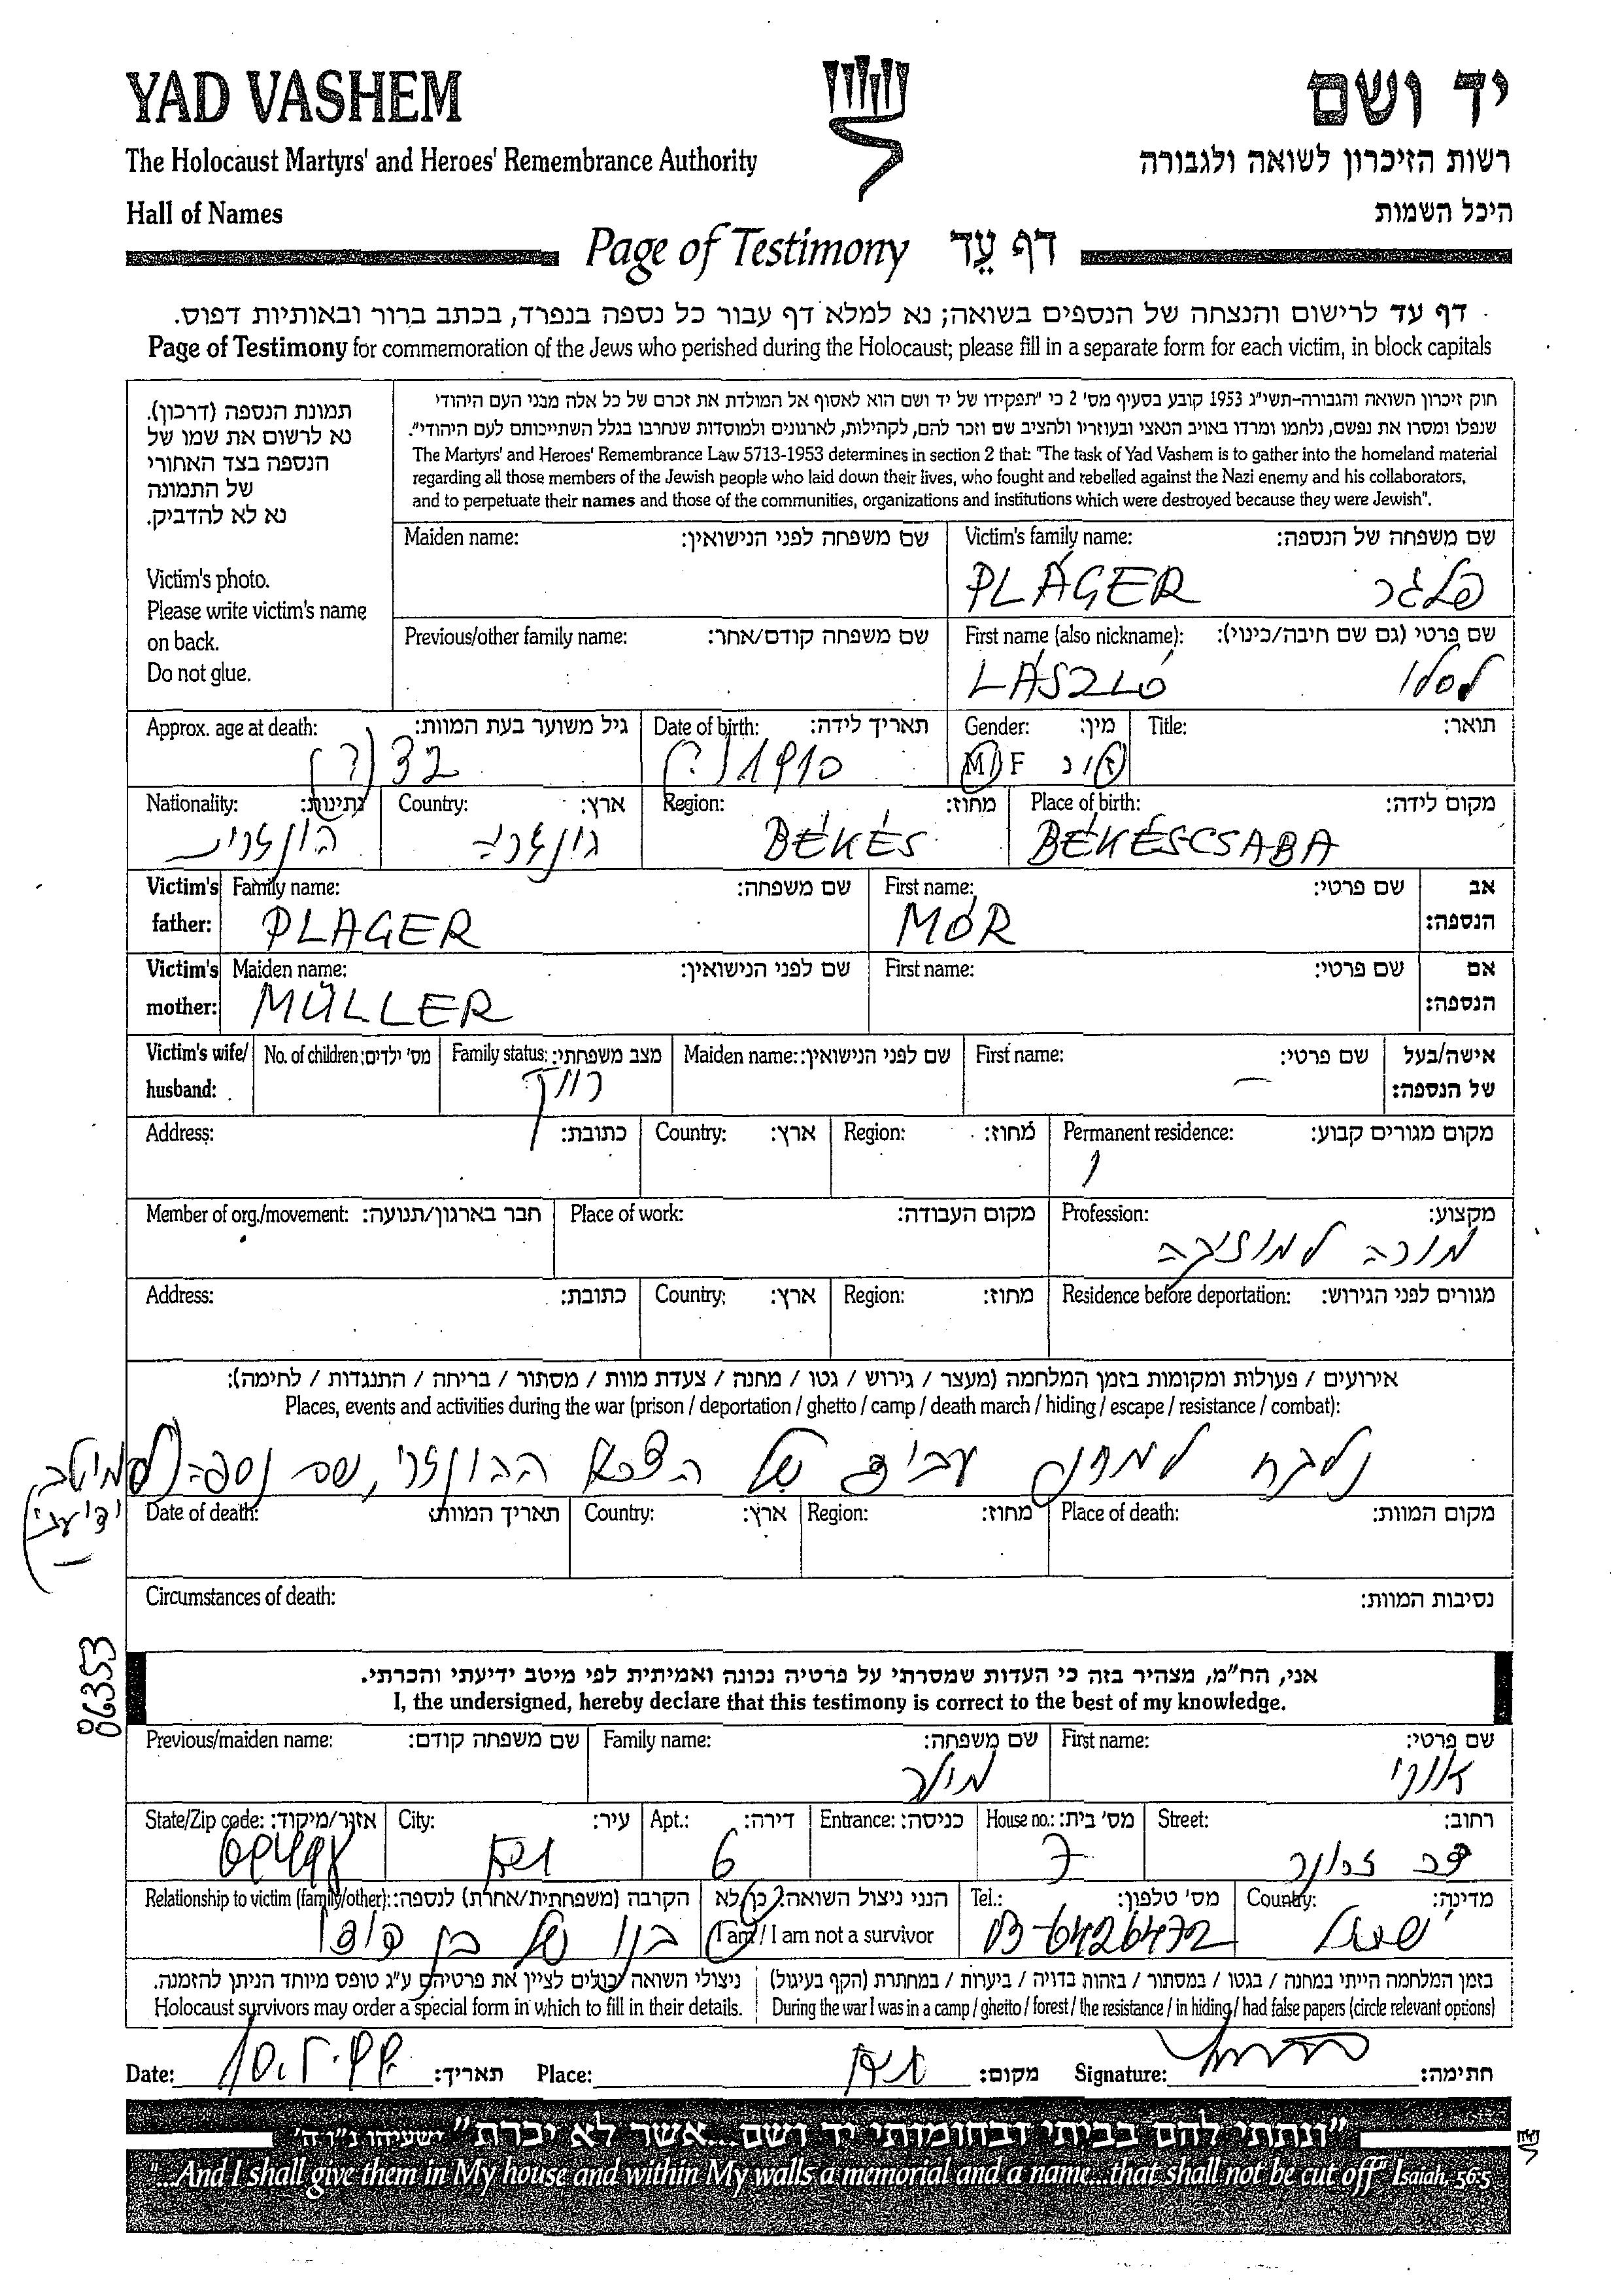 YAD VASHEM
יד ושם
The Holocaust Martyrs' and Heroes' Remembrance Authority
רשות הזיכרון לשואה ולגבורה
Hall of Names
היכל השמות
Page of Testimony דף עֵד
דף עד לרישום והנצחה של הנספים בשואה; נא למלא דף עבור כל נספה בנפרד, בכתב ברור ובאותיות דפוס.
Page of Testimony for commemoration of the Jews who perished during the Holocaust; please fill in a separate form for each victim, in block capitals
תמונת הנספה (דרכון).
נא לרשום את שמו של
הנספה בצד האחורי
של התמונה
נא לא להדביק.
Victim's photo.
Please write victim's name
on back.
Do not glue.
חוק זיכרון השואה והגבורה-תשי"ג 1953 קובע בסעיף מס' 2 כי "תפקידו של יד ושם הוא לאסוף אל המולדת את זכרם של כל אלה מבני העם היהודי
שנפלו ומסרו את נפשם, נלחמו ומרדו באויב הנאצי ובעוזריו ולהציב שם וזכר להם, לקהילות, לארגונים ולמוסדות שנחרבו בגלל השתייכותם לעם היהודי".
The Martyrs' and Heroes' Remembrance Law 5713-1953 determines in section 2 that: "The task of Yad Vashem is to gather into the homeland material
regarding all those members of the Jewish people who laid down their lives, who fought and rebelled against the Nazi enemy and his collaborators,
and to perpetuate their names and those of the communities, organizations and institutions which were destroyed because they were Jewish".
Maiden name: שם משפחה לפני הנישואין: Victim's family name: שם משפחה של הנספה:
PLÁGER פלגר
Previous/other family name: שם משפחה קודם/אחר: First name (also nickname): שם פרטי (גם שם חיבה/כינוי):
LÁSZLÓ לסלו
Approx. age at death: גיל משוער בעת המוות: Date of birth: תאריך לידה: Gender: מין: Title: תואר:
32 (?) 1910 (?) M / F ז / נ
Nationality: נתינות: Country: ארץ: Region: מחוז: Place of birth: מקום לידה:
הונגרית הונגריה BÉKÉS BÉKÉSCSABA
Victim's father: Family name: שם משפחה: First name: שם פרטי: אב הנספה:
PLAGER MÓR
Victim's mother: Maiden name: שם לפני הנישואין: First name: שם פרטי: אם הנספה:
MÜLLER
Victim's wife/ husband: No. of children: מס' ילדים: Family status: מצב משפחתי: Maiden name: שם לפני הנישואין: First name: שם פרטי: אישה/בעל של הנספה:
רווק –
Address: כתובת: Country: ארץ: Region: מחוז: Permanent residence: מקום מגורים קבוע:
Member of org./movement: חבר בארגון/תנועה: Place of work: מקום העבודה: Profession: מקצוע:
מורה למוזיקה
Address: כתובת: Country: ארץ: Region: מחוז: Residence before deportation: מגורים לפני הגירוש:
אירועים / פעולות ומקומות בזמן המלחמה (מעצר / גירוש / גטו / מחנה / צעדת מוות / מסתור / בריחה / התנגדות / לחימה):
Places, events and activities during the war (prison / deportation / ghetto / camp / death march / hiding / escape / resistance / combat):
נלקח למחנה עבודה של הצבא ההונגרי, שם נספה (למיטב
ידיעתי)
Date of death: תאריך המוות: Country: ארץ: Region: מחוז: Place of death: מקום המוות:
Circumstances of death: נסיבות המוות:
86353
אני, הח"מ, מצהיר בזה כי העדות שמסרתי על פרטיה נכונה ואמיתית לפי מיטב ידיעתי והכרתי.
I, the undersigned, hereby declare that this testimony is correct to the best of my knowledge.
Previous/maiden name: שם משפחה קודם: Family name: שם משפחה: First name: שם פרטי:
מילר
State/Zip code: אזור/מיקוד: City: עיר: Apt.: דירה: Entrance: כניסה: House no.: מס' בית: Street: רחוב:
6 7
Relationship to victim (family/other): הקרבה (משפחתית/אחרת) לנספה: הנני ניצול השואה: כן/לא Tel.: מס' טלפון: Country: מדינה:
בנו של בן דודו I am / I am not a survivor 03-6426472 ישראל
ניצולי השואה יכולים לציין את פרטיהם ע"ג טופס מיוחד הניתן להזמנה. בזמן המלחמה הייתי במחנה / בגטו / במסתור / בזהות בדויה / ביערות / במחתרת (הקף בעיגול)
Holocaust survivors may order a special form in which to fill in their details. During the war I was in a camp / ghetto / forest / the resistance / in hiding / had false papers (circle relevant options)
Date: תאריך: Place: מקום: Signature: חתימה:
"ונתתי להם בביתי ובחומותי יד ושם...אשר לא יכרת" ישעיהו נ"ו ה'
"...And I shall give them in My house and within My walls a memorial and a name...that shall not be cut off" Isaiah, 56:5